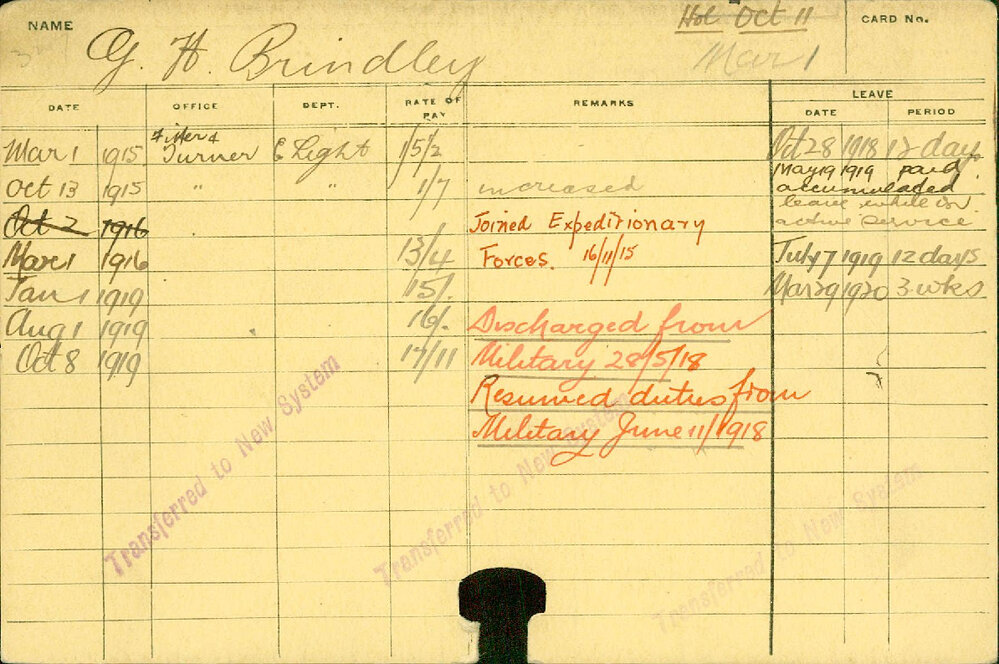 NAME
G. H. Brindley
Hol Oct 11
Mar 1
CARD No.
DATE OFFICE DEPT. RATE OF PAY REMARKS LEAVE
DATE PERIOD
Mar 1 1915 Fitter & Turner E Light 1/5½
Oct 13 1915 " " 1/7 increased
Oct 2 1916 Joined Expeditionary
Mar 1 1916 13/4 Forces. 16/11/15
Jan 1 1919 15/.
Aug 1 1919 16/. Discharged from
Oct 8 1919 17/11 Military 28/5/18
Resumed duties from
Military June 11/1918
Oct 28 1918 12 days
May 19 1919 paid
accumulated
leave while on
active service
July 7 1919 12 days
Mar 29 1920 3 wks
Transferred to New System
Transferred to New System
Transferred to New System